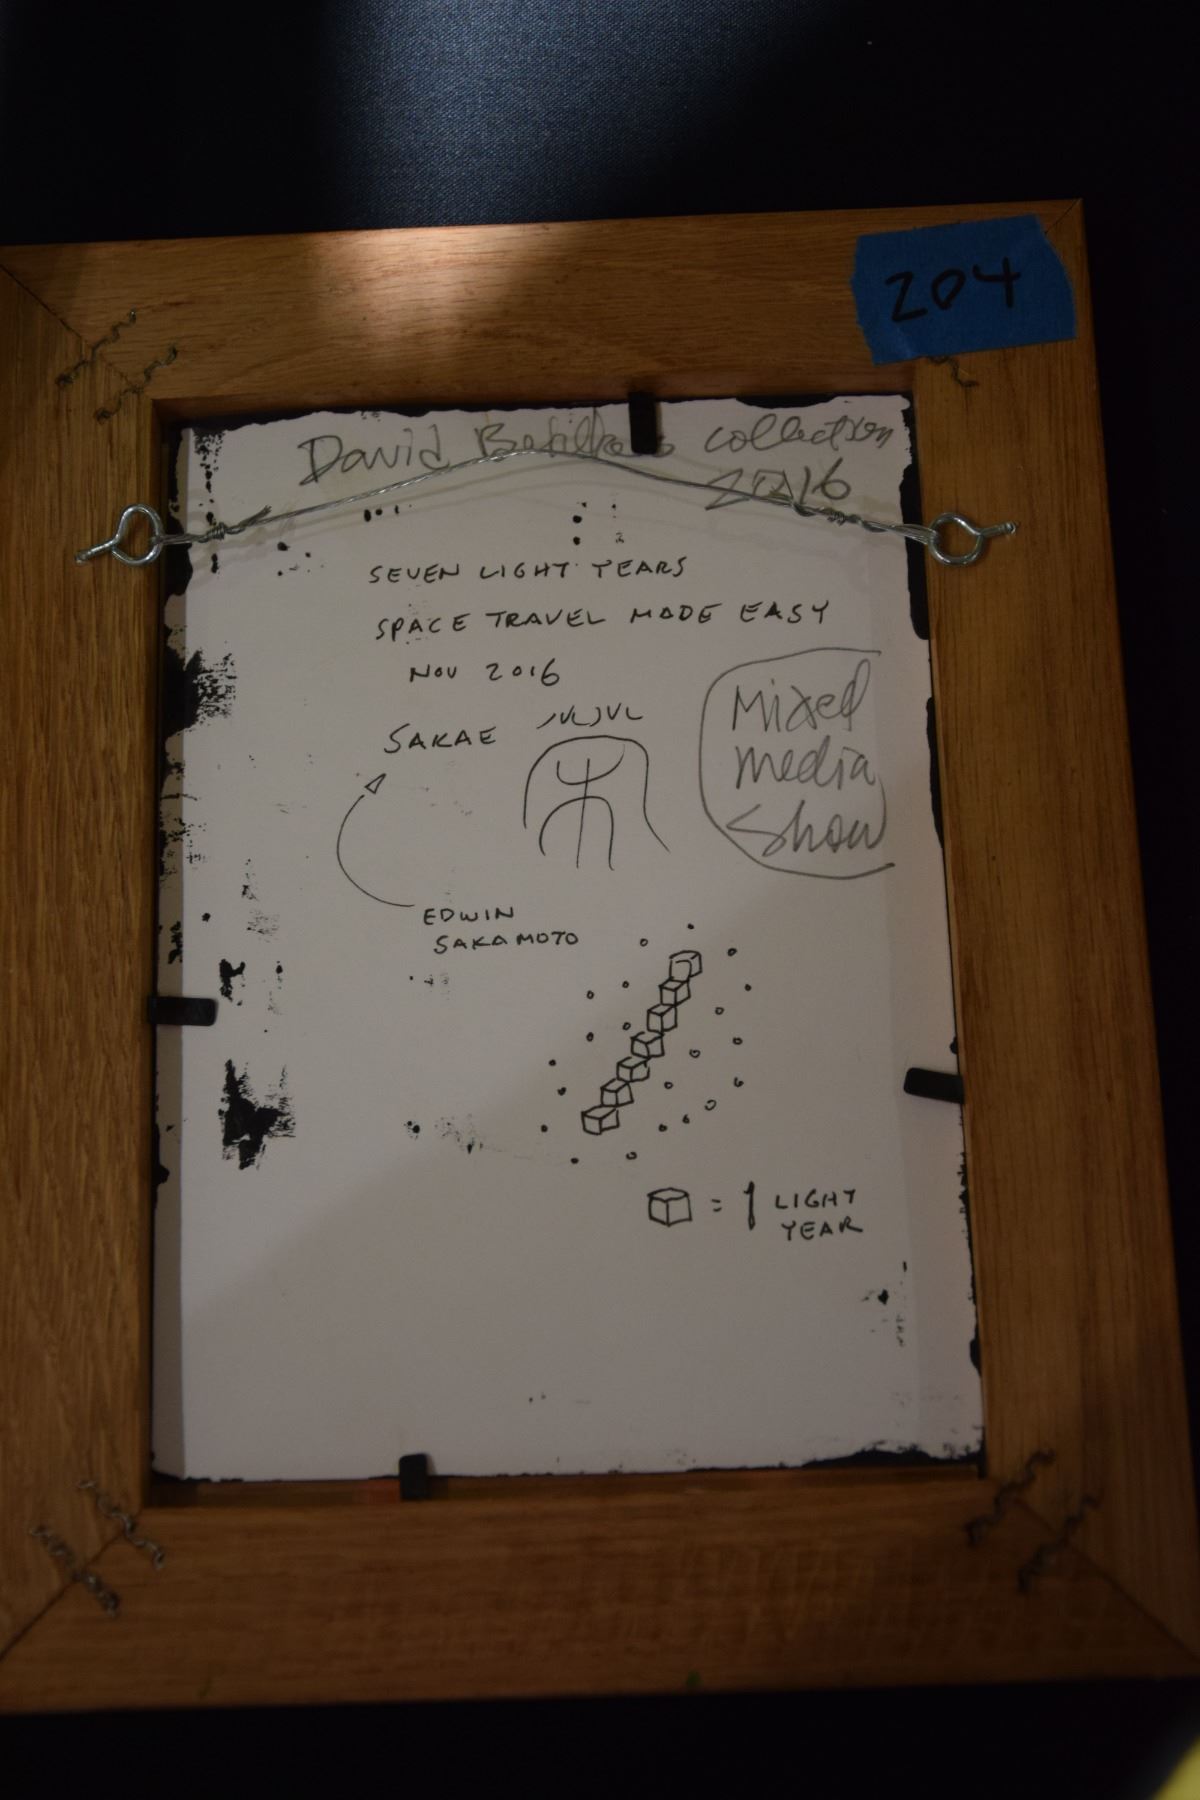 204
David collection
2016
SEVEN LIGHT YEARS
SPACE TRAVEL MADE EASY
NOV 2016
SAKAE
Mixed
media
Show
EDWIN
SAKAMOTO
= 1 LIGHT
YEAR